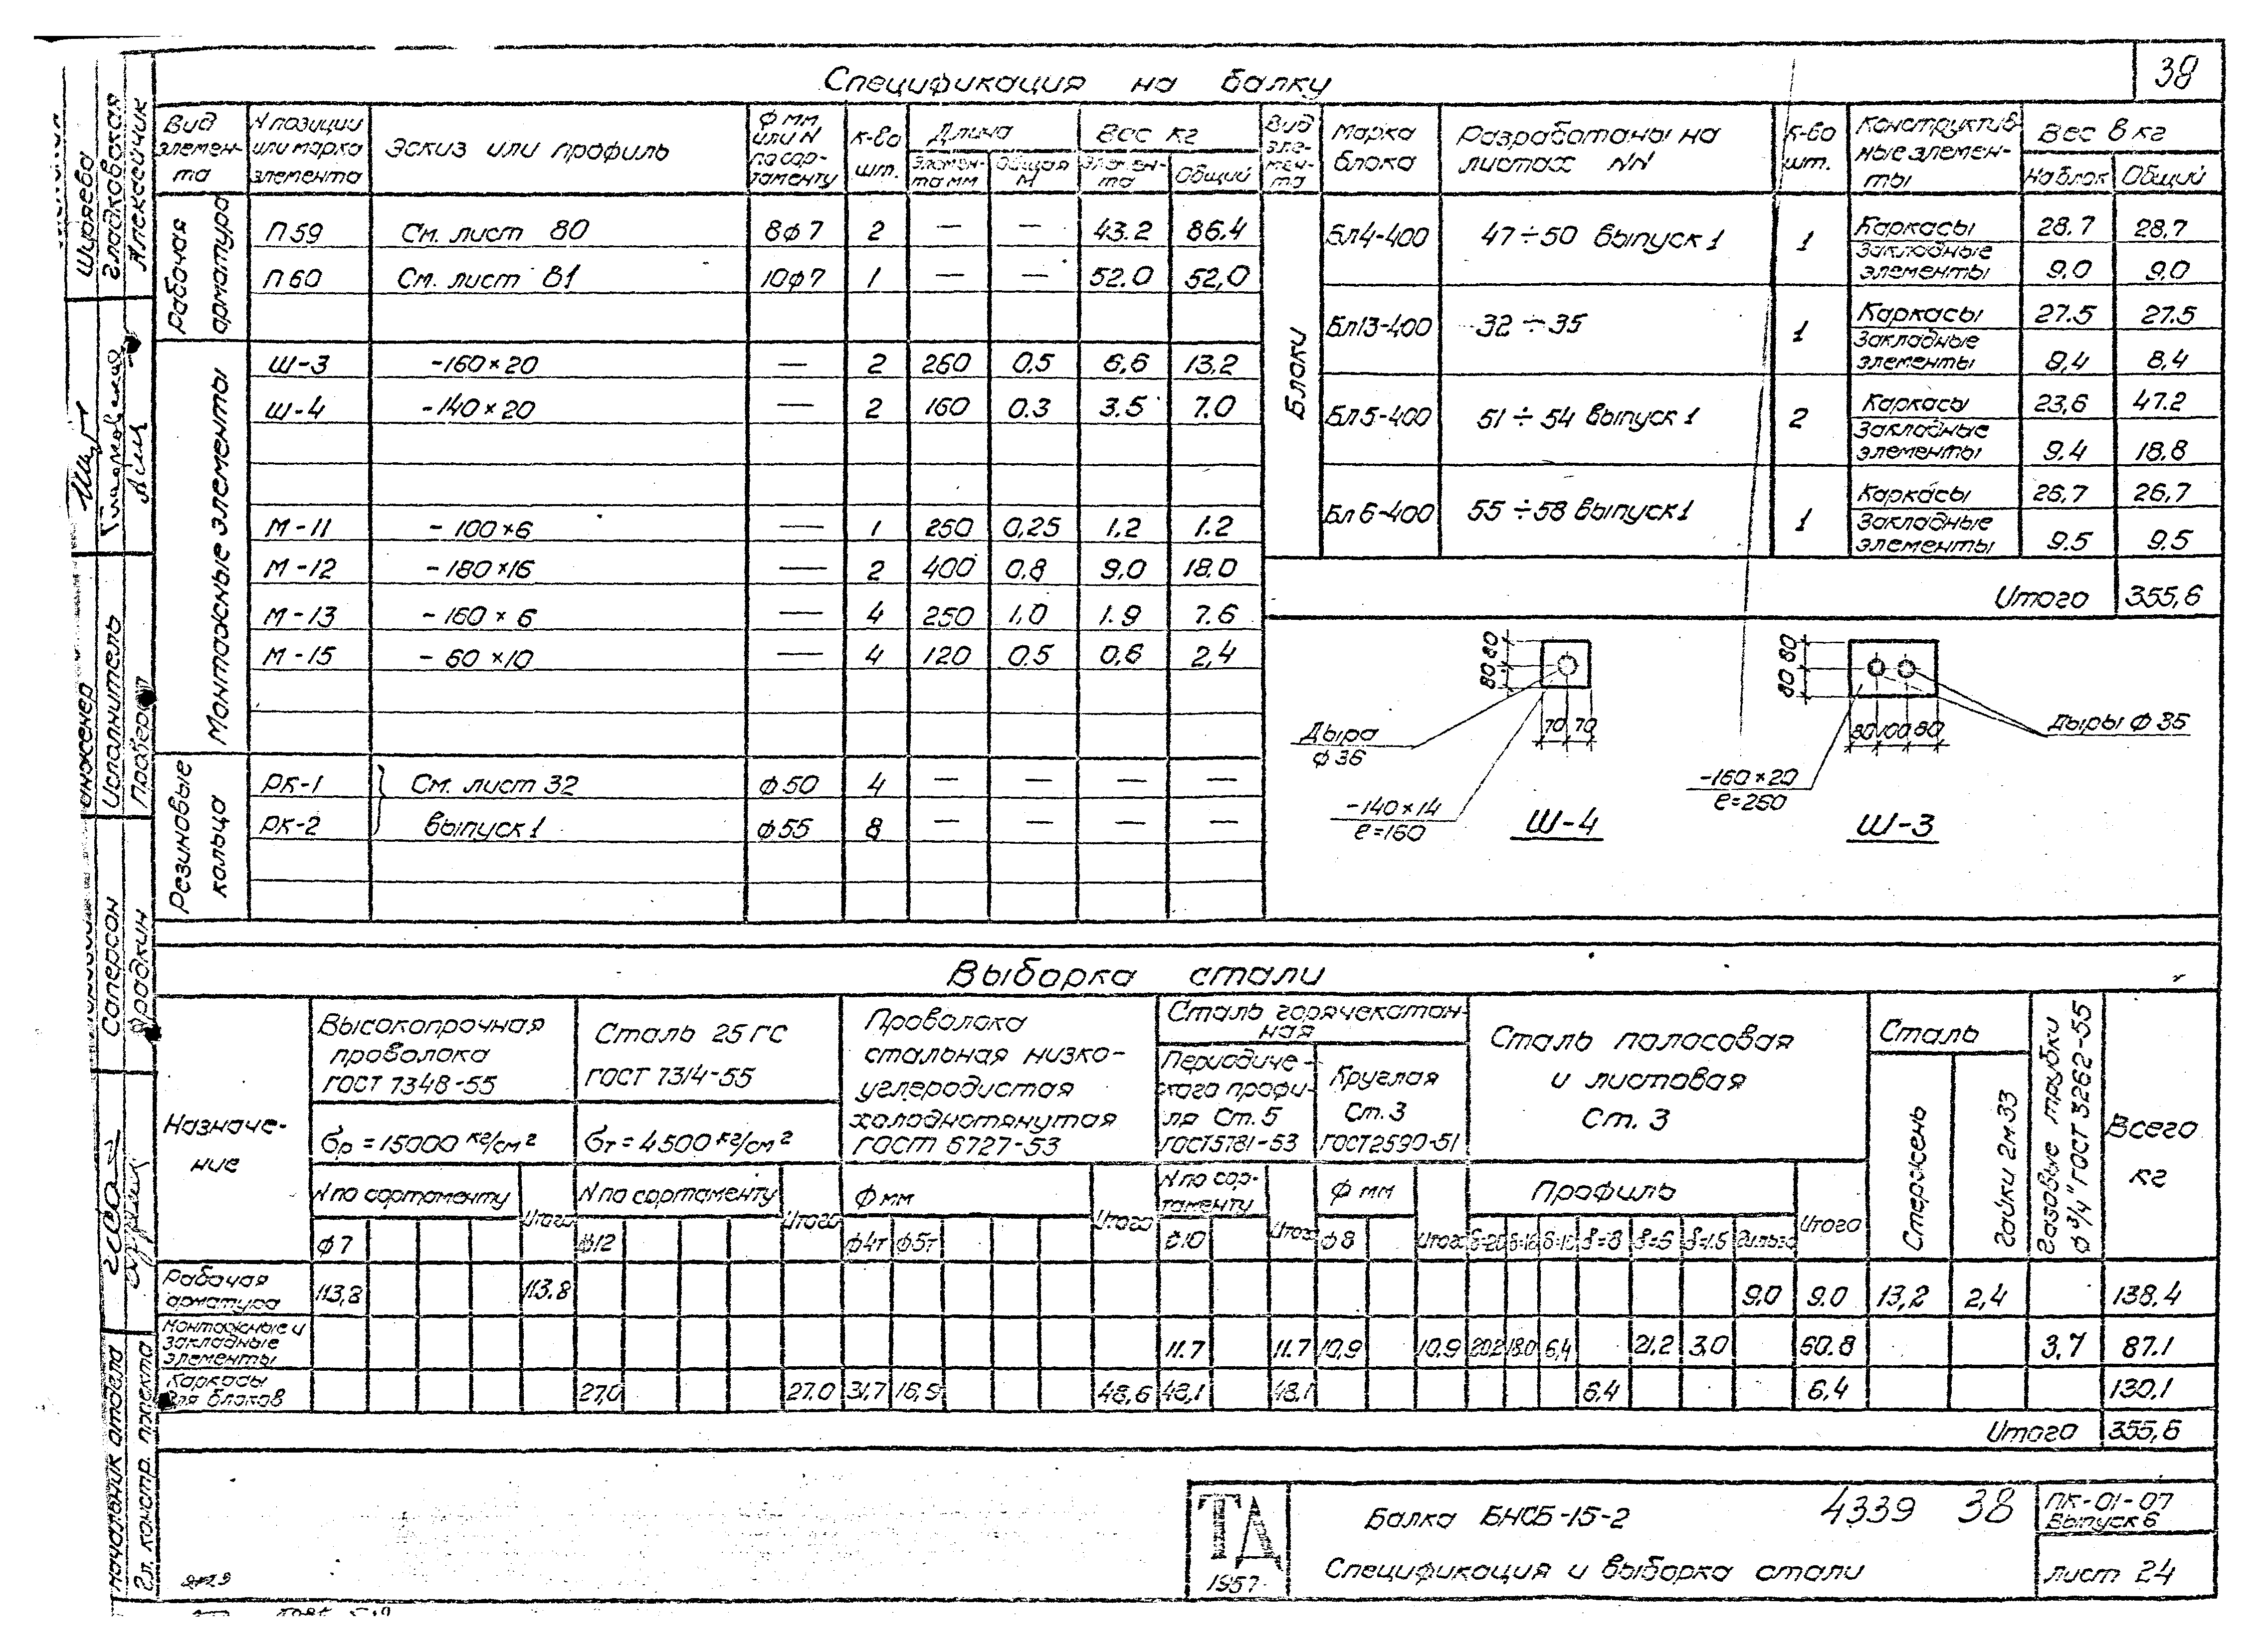 38
Спецификация на балку
Вид элемента | N позиции или марка элемента | Эскиз или профиль | ф мм или N по сортаменту | К-во шт. | Длина | Вес кг
Элемента мм | Общая м | Элемента | Общий
Рабочая арматура
П59 | См. лист 80 | 8ф7 | 2 | — | — | 43.2 | 86,4
П60 | См. лист 81 | 10ф7 | 1 | — | — | 52.0 | 52,0
Монтажные элементы
Ш-3 | -160×20 | — | 2 | 260 | 0.5 | 6,6 | 13,2
Ш-4 | -140×20 | — | 2 | 160 | 0.3 | 3.5 | 7.0
М-11 | - 100×6 | — | 1 | 250 | 0,25 | 1,2 | 1.2
М-12 | - 180×16 | — | 2 | 400 | 0,8 | 9,0 | 18,0
М-13 | - 160 × 6 | — | 4 | 250 | 1,0 | 1.9 | 7.6
М-15 | - 60 ×10 | — | 4 | 120 | 0.5 | 0,6 | 2,4
Резиновые кольца
РК-1 | См. лист 32 | ф50 | 4 | — | — | — | —
РК-2 | выпуск 1 | ф55 | 8 | — | — | — | —
Вид элемента | Марка блока | Разработаны на листах NN | К-во шт. | Конструктивные элементы | Вес в кг
На блок | Общий
Блоки
Бл4-400 | 47÷50 выпуск 1 | 1 | Каркасы | 28.7 | 28,7
Закладные элементы | 9.0 | 9.0
Бл13-400 | 32 ÷ 35 | 1 | Каркасы | 27.5 | 27.5
Закладные элементы | 9,4 | 8,4
Бл5-400 | 51 ÷ 54 выпуск 1 | 2 | Каркасы | 23,6 | 47.2
Закладные элементы | 9.4 | 18.8
Бл6-400 | 55 ÷58 выпуск 1 | 1 | Каркасы | 26,7 | 26,7
Закладные элементы | 9.5 | 9.5
Итого 355,6
80 80
Дыра
ф 36
70 70
-140×14
e=160
Ш-4
80 80
80 100 80
Дыры ф 36
-160×20
e=260
Ш-3
Выборка стали
Назначение
Высокопрочная проволока ГОСТ 7348-55
бр = 15000 кг/см2
N по сортаменту | Итого
ф7
Сталь 25ГС ГОСТ 7314-55
бт = 4500 кг/см2
N по сортаменту | Итого
ф12
Проволока стальная низкоуглеродистая холоднотянутая ГОСТ 6727-53
ф мм | Итого
ф4т | ф5т
Сталь горячекатанная
Периодического профиля Ст. 5 ГОСТ5781-53
N по сортаменту | Итого
ф10
Круглая Ст. 3 ГОСТ2590-51
ф мм | Итого
ф8
Сталь полосовая и листовая Ст. 3
Профиль | Итого
δ=20 | δ=16 | δ=10 | δ=8 | δ=6 | δ=1.5 | Гильза
Сталь
Стержень | Гайки 2м33
Газовые трубки ф 3/4" ГОСТ 3262-55
Всего кг
Рабочая арматура | 113,8 | 113.8 | 9.0 | 9.0 | 13,2 | 2,4 | 138.4
Монтажные и закладные элементы | 11.7 | 11.7 | 10,9 | 10.9 | 20.2 | 18.0 | 6,4 | 21,2 | 3,0 | 60.8 | 3,7 | 87.1
Каркасы для блоков | 27,0 | 27.0 | 31,7 | 16,9 | 48,6 | 48,1 | 48,1 | 6,4 | 6,4 | 130,1
Итого 355,6
ТД
1957
Балка БНСБ-15-2
4339 38
Спецификация и выборка стали
ПК-01-07
Выпуск 6
лист 24
Ширяева
Гладковская
Алексейчик
инженер
Исполнитель
Проверил
Саперсон
Ярадкин
Начальник отдела
Гл. констр. проекта